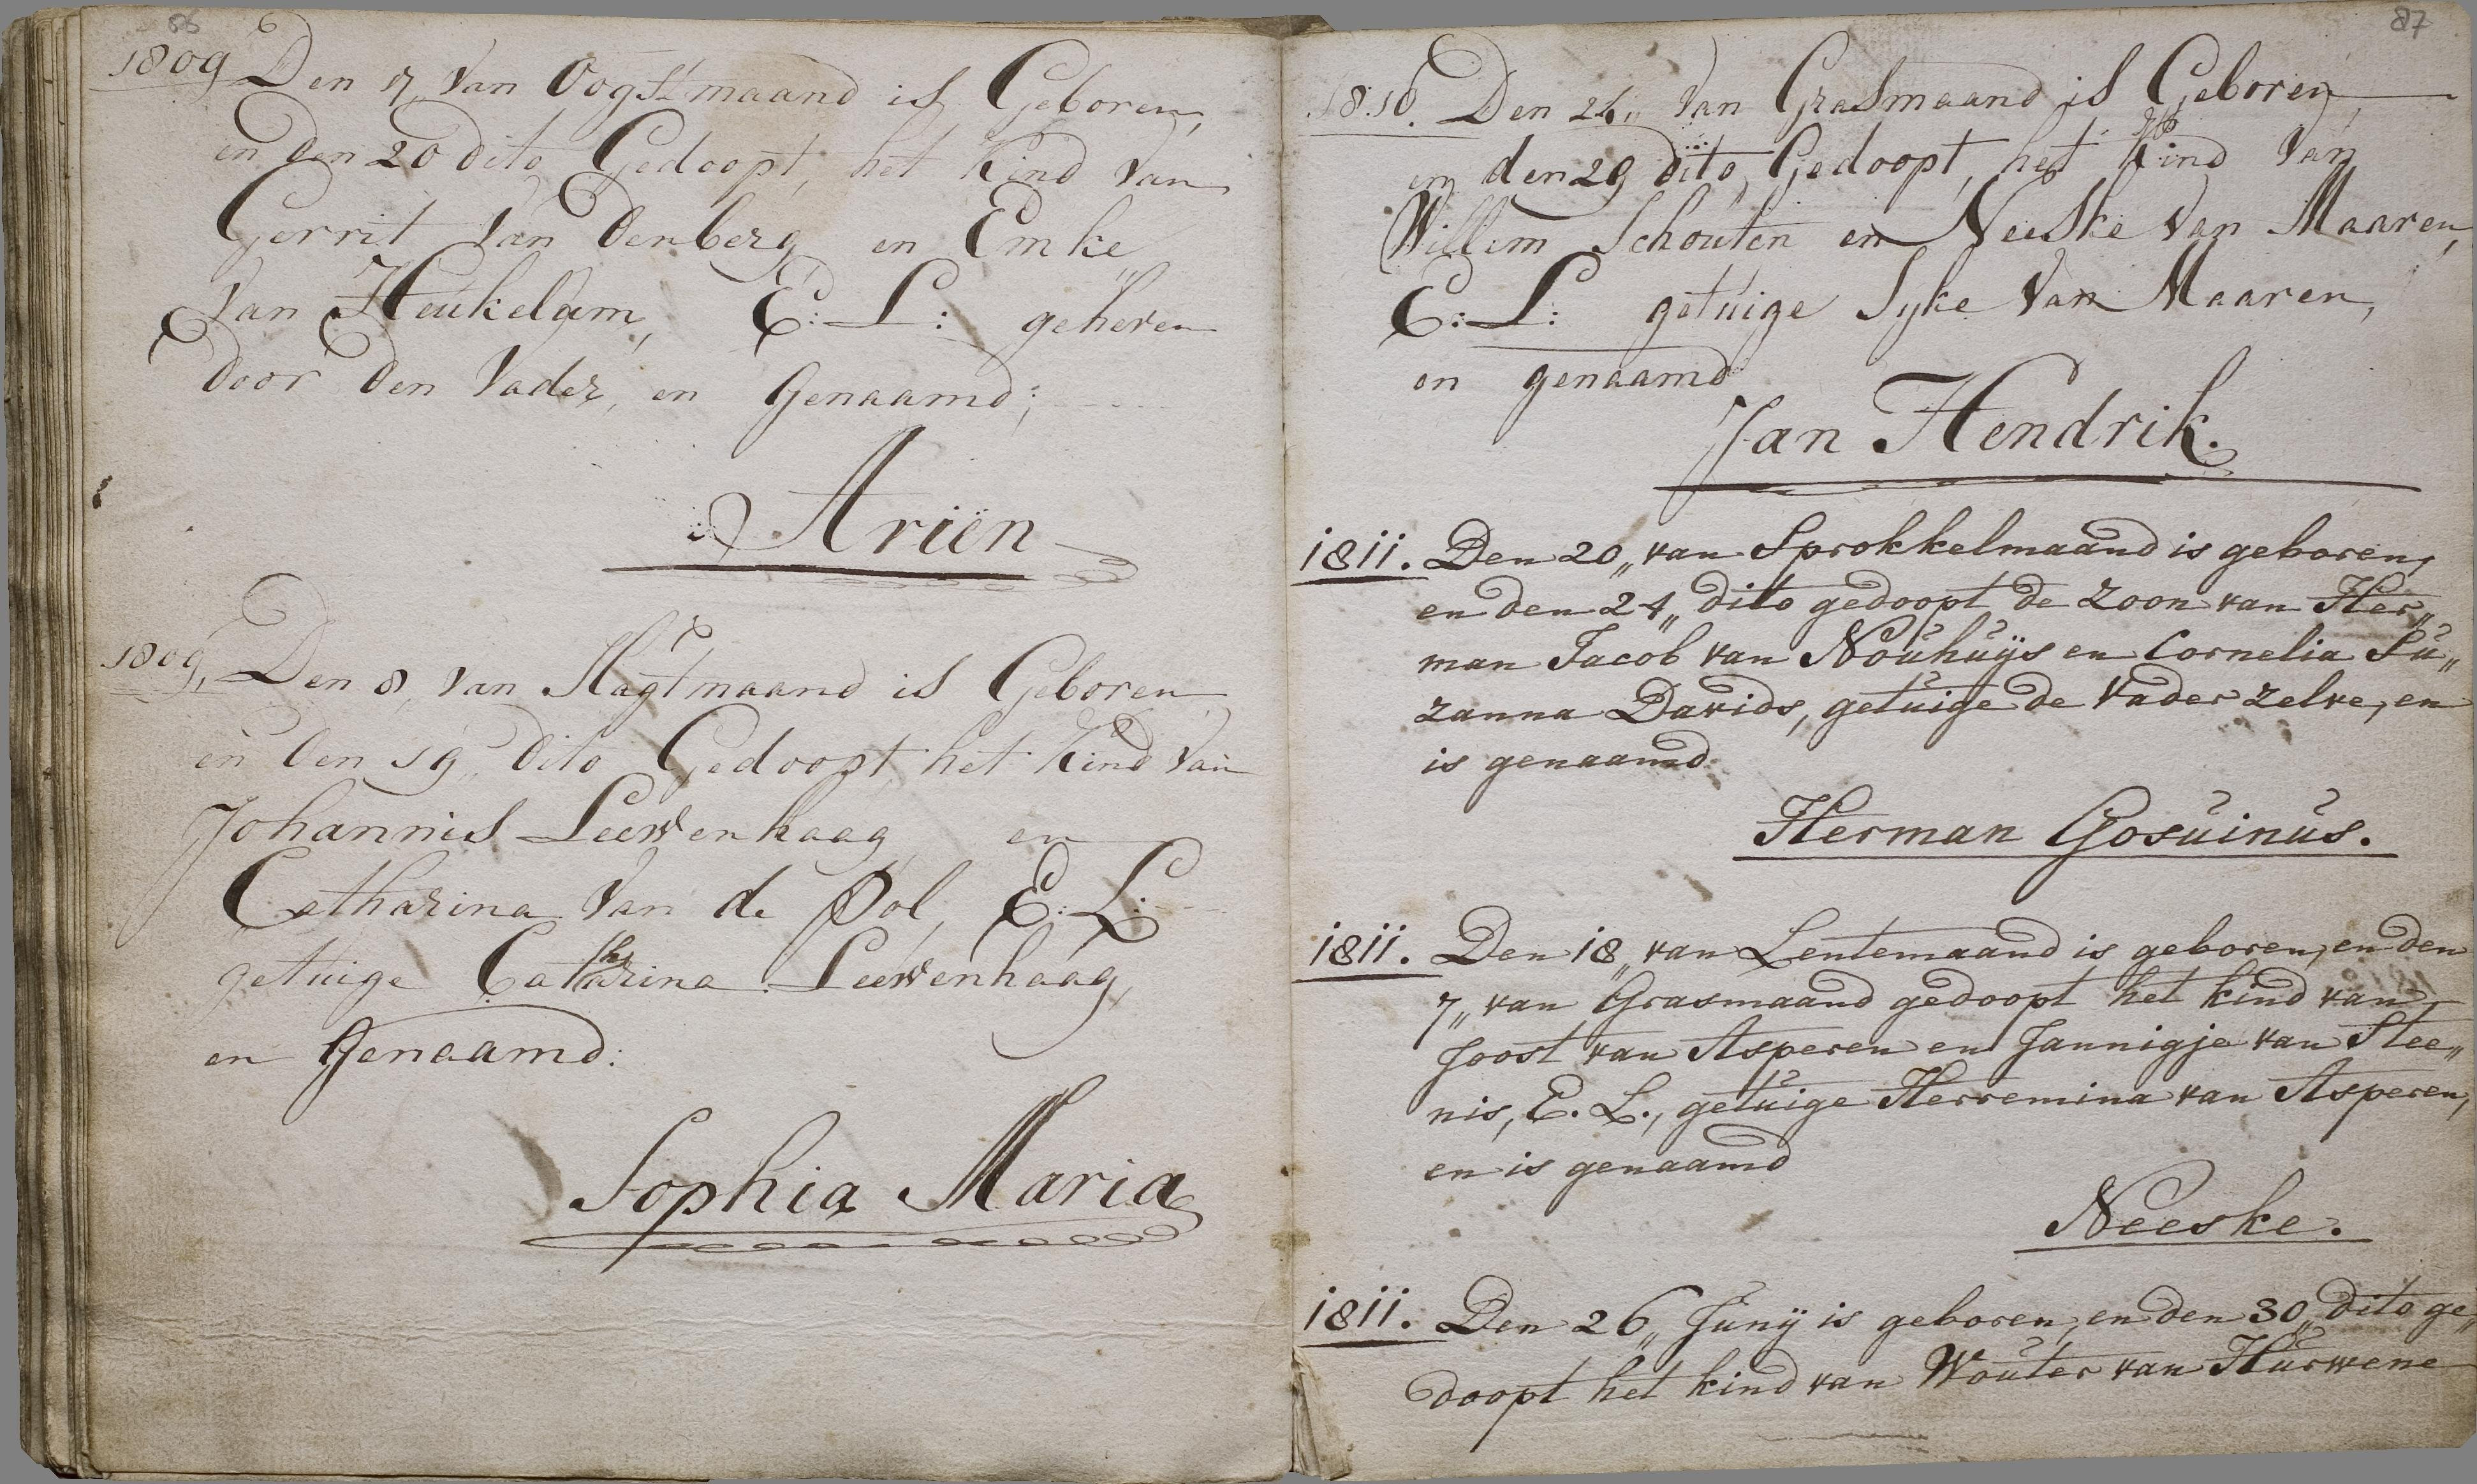 86
1809 Den 17, Van Oogstmaand is Geboren,
en den 20 dito Gedoopt, het Kind Van
Gerrit Van Denberg en Emke
Van Heukelom, E: L: geheven
door den Vader, en Genaamd;
Ariën
1809, Den 8, Van Slagtmaand is Geboren
en den 19,, dito Gedoopt, het Kind Van
Johannis Leewenhaag en
Catharina Van de Pol, E: L:
getuige Catharina Leewenhaag,
en Genaamd:
Sophia Maria
87
1810. Den 26,, Van Grasmaand is Geboren,
en den 29 dito Gedoopt, het Kind Van
Willem Schouten en Neeske Van Maaren,
E: L: getuige Syke Van Maaren,
en genaamd
Jan Hendrik.
1811. Den 20,, van Sprokkelmaand is geboren,
en den 24,, dito gedoopt de zoon van Her,,
man Jacob van Nouhuijs en Cornelia Su,,
zanna Davids, getuige de Vader zelve, en
is genaamd
Herman Gosuinus.
1811. Den 18,, van Lentemaand is geboren, en den
7,, van Grasmaand gedoopt het kind van
Joost van Asperen en Jannigje van Stee,,
nis, E. L., getuige Herremina van Asperen,
en is genaamd
Neeske.
1811. Den 26,, Junij is geboren, en den 30,, dito ge,,
doopt het kind van Wouter van Hurwene